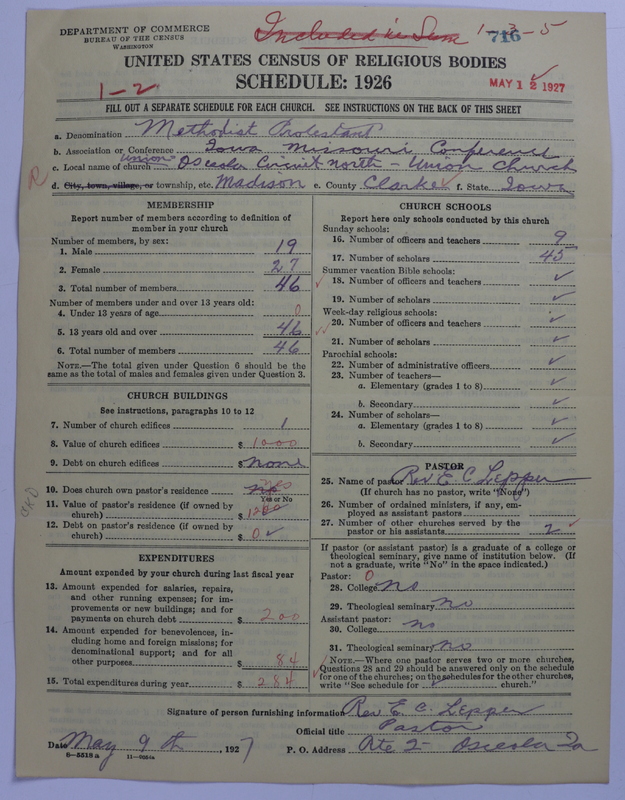 DEPARTMENT OF COMMERCE
BUREAU OF THE CENSUS
WASHINGTON
Included in Sem 1-3-5
716
UNITED STATES CENSUS OF RELIGIOUS BODIES
SCHEDULE: 1926
1-2
MAY 12 1927
FILL OUT A SEPARATE SCHEDULE FOR EACH CHURCH. SEE INSTRUCTIONS ON THE BACK OF THIS SHEET
a. Denomination Methodist Protestant
b. Association or Conference Iowa Missouri Conference
c. Local name of church Union Osceola Circuit North - Union Church
R d. City, town, village, or township, etc. Madison e. County Clarke f. State Iowa
MEMBERSHIP
Report number of members according to definition of
member in your church
Number of members, by sex:
1. Male 19
2. Female 27
3. Total number of members 46
Number of members under and over 13 years old:
4. Under 13 years of age 0
5. 13 years old and over 46
6. Total number of members 46
NOTE.—The total given under Question 6 should be
same as the total of males and females given under Question 3.
CHURCH BUILDINGS
See instructions, paragraphs 10 to 12
7. Number of church edifices 1
8. Value of church edifices $ 1000
9. Debt on church edifices $ none
10. Does church own pastor's residence no yes
Yes or No
11. Value of pastor's residence (if owned by
church) $ 1200
12. Debt on pastor's residence (if owned by
church) $ 0
EXPENDITURES
Amount expended by your church during last fiscal year
13. Amount expended for salaries, repairs,
and other running expenses; for im-
provements or new buildings; and for
payments on church debt $ 200
14. Amount expended for benevolences, in-
cluding home and foreign missions; for
denominational support; and for all
other purposes $ 84
15. Total expenditures during year $ 284
CHURCH SCHOOLS
Report here only schools conducted by this church
Sunday schools:
16. Number of officers and teachers 9
17. Number of scholars 45
Summer vacation Bible schools:
18. Number of officers and teachers ✓
19. Number of scholars ✓
Week-day religious schools:
20. Number of officers and teachers ✓
21. Number of scholars ✓
Parochial schools:
22. Number of administrative officers ✓
23. Number of teachers—
a. Elementary (grades 1 to 8) ✓
b. Secondary ✓
24. Number of scholars—
a. Elementary (grades 1 to 8) ✓
b. Secondary ✓
PASTOR
25. Name of pastor Rev E C Lepper
(If church has no pastor, write "None")
26. Number of ordained ministers, if any, em-
ployed as assistant pastors
27. Number of other churches served by the
pastor or his assistants 2
If pastor (or assistant pastor) is a graduate of a college or
theological seminary, give name of institution below. (If
not a graduate, write "No" in the space indicated.)
Pastor: 0
28. College no
29. Theological seminary no
Assistant pastor:
30. College no
31. Theological seminary no
NOTE.—Where one pastor serves two or more churches,
Questions 28 and 29 should be answered only on the schedule
for one of the churches; on the schedules for the other churches,
write "See schedule for ✓ church."
Signature of person furnishing information Rev E C. Lepper
Official title Pastor
Date May 9th, 1927 P. O. Address Rte 2- Osceola Ia
8-5518a 11-9064a